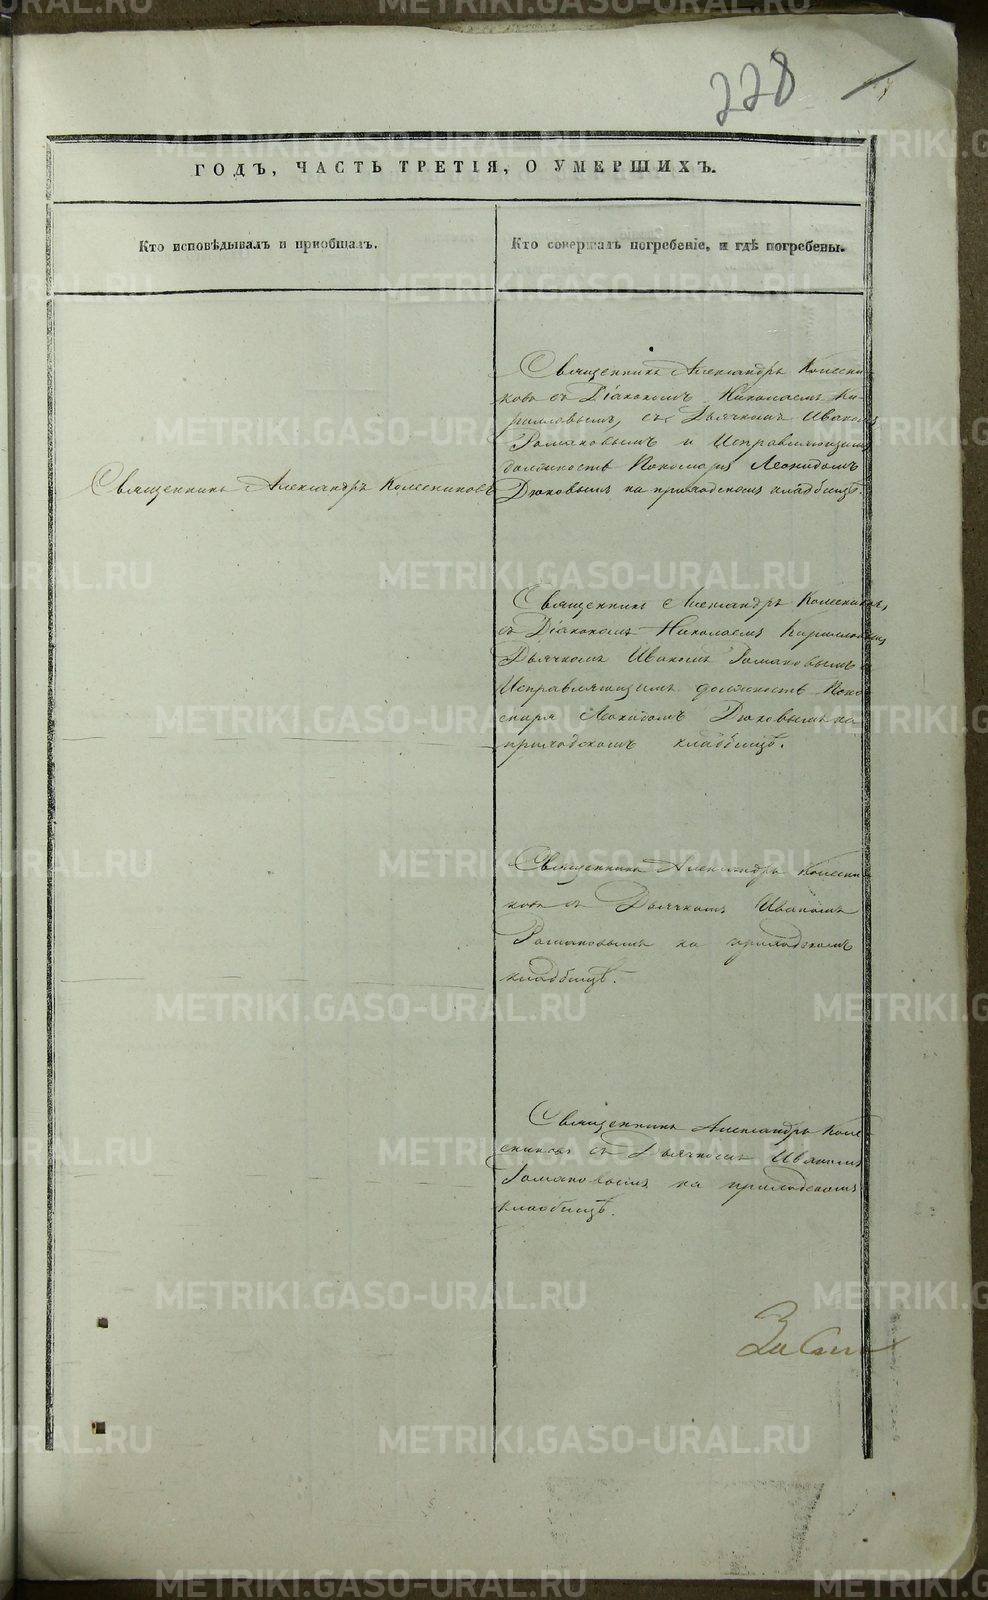 228
ГОДЪ, ЧАСТЬ ТРЕТІЯ, О УМЕРШИХЪ.
Кто исповѣдывалъ и пріобщалъ.
Кто совершалъ погребеніе, и гдѣ погребены.
Священникъ Александръ Колесниковъ
Священникъ Александръ Колесни-
ковъ съ Діакономъ Николаемъ Ки-
рилловымъ, съ Дьячкомъ Иваномъ
Романовымъ и Исправляющимъ
должность Пономаря Леонидомъ
Дюковымъ на приходскомъ кладбищѣ.
Священникъ Александръ Колесниковъ,
съ Діакономъ Николаемъ Кирилловымъ,
Дьячкомъ Иваномъ Романовымъ и
Исправляющимъ должность Поно
маря Леонидомъ Дюковымъ на
приходскомъ кладбищѣ.
Священникъ Александръ Колесни
ковъ съ Дьячкомъ Иваномъ
Романовымъ на приходскомъ
кладбищѣ.
Священникъ Александръ Коле
сниковъ съ Дьячкомъ Иваномъ
Романовымъ на приходскомъ
кладбищѣ.
METRIKI.GASO-URAL.RU